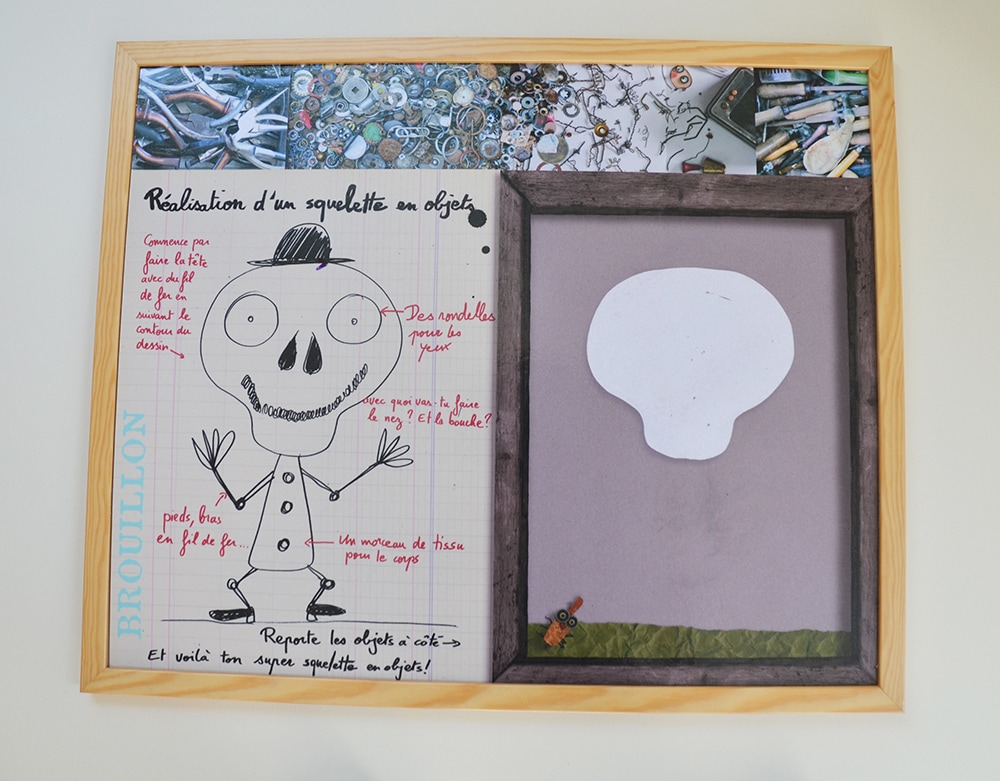 Réalisation d'un squelette en objets
Commence par
faire la tête
avec du fil
de fer en
suivant le
contour du
dessin
Des rondelles
pour les
yeux
avec quoi vas-tu faire
le nez ? Et la bouche ?
pieds, bras
en fil de fer...
un morceau de tissu
pour le corps
BROUILLON
Reporte les objets à côté →
Et voilà ton super squelette en objets !